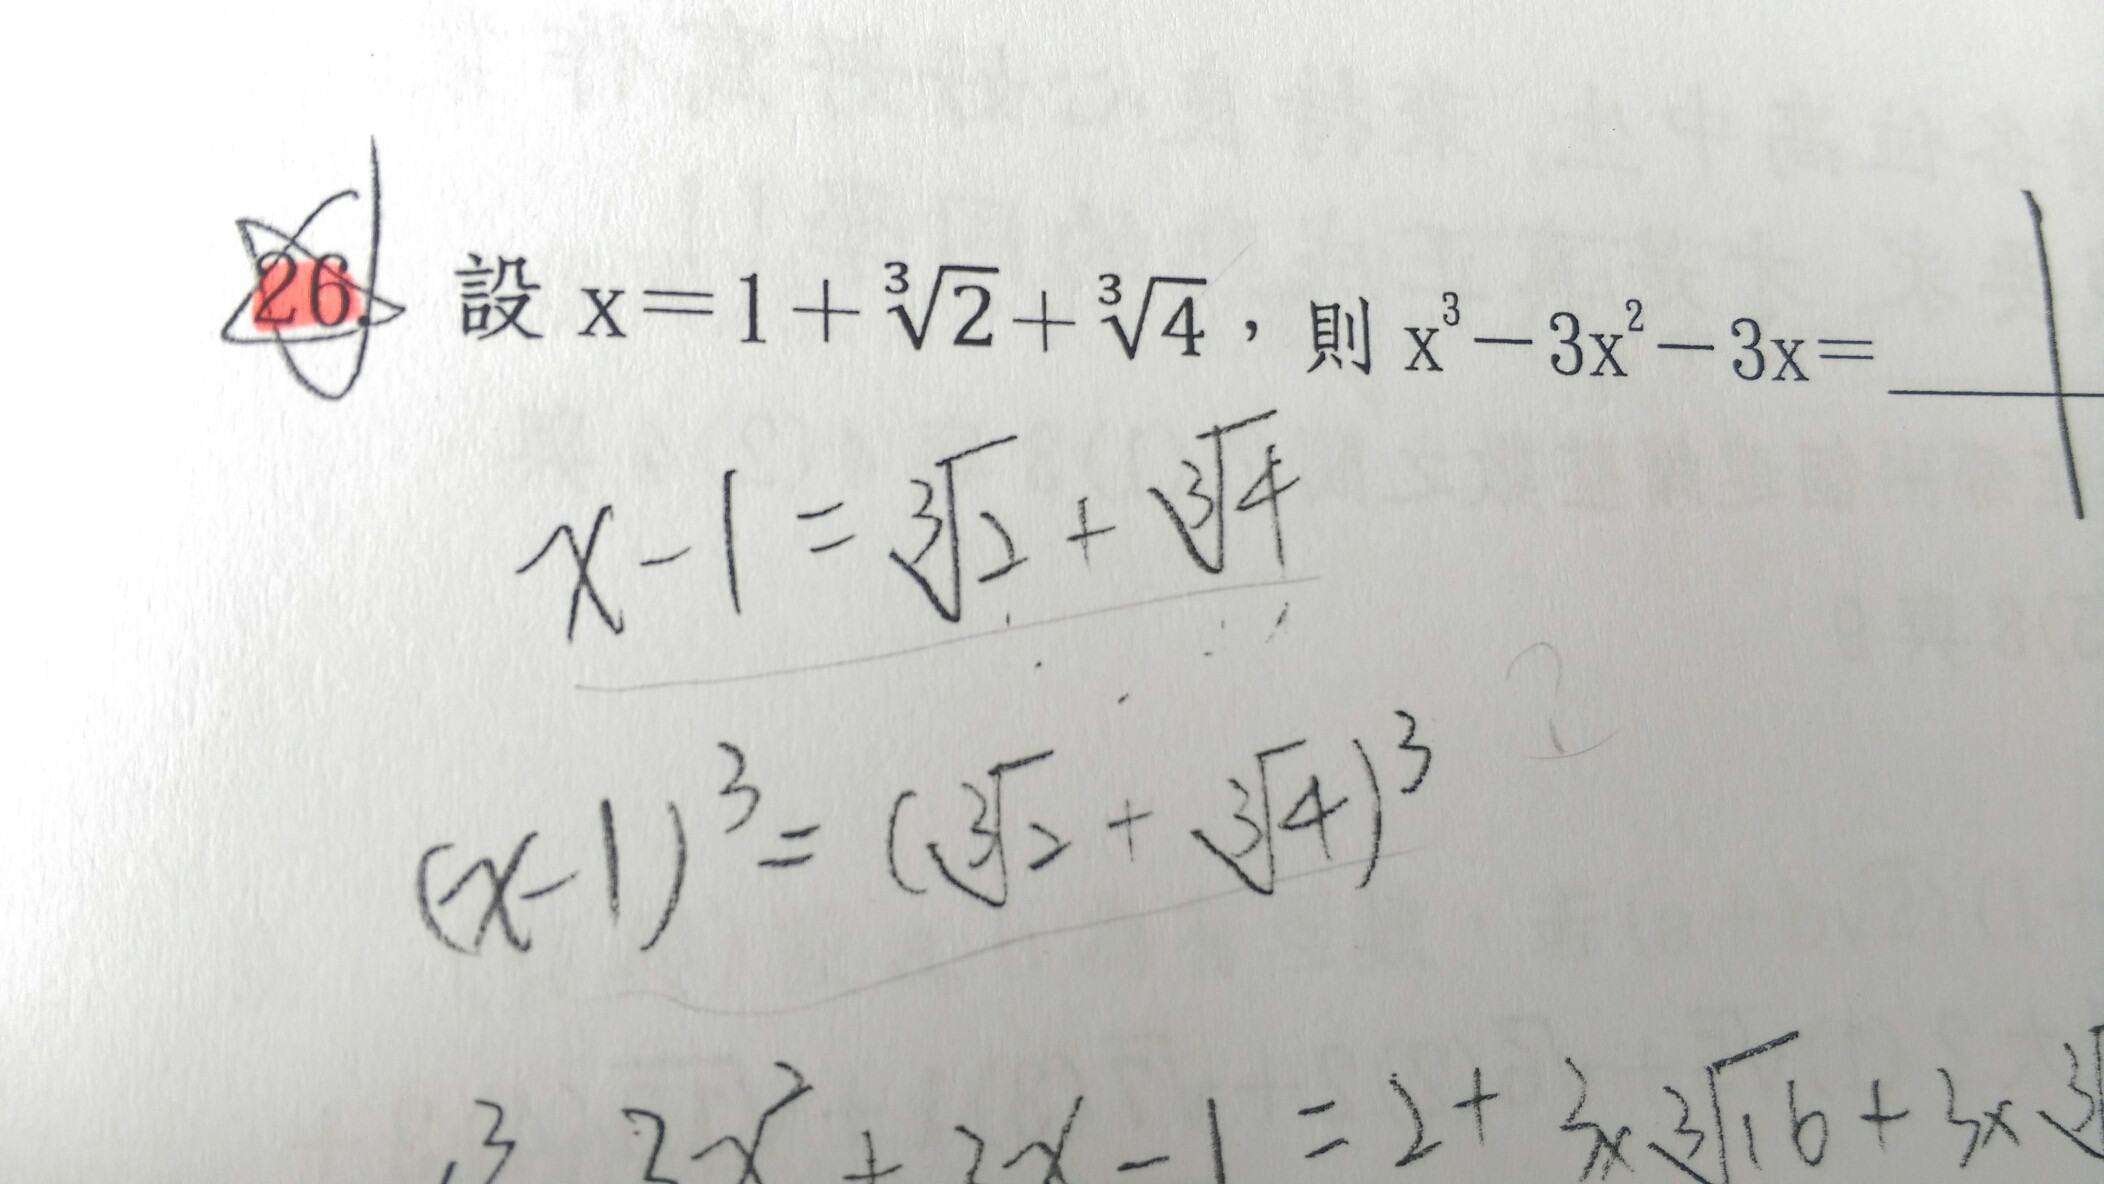 26. 設 x=1+∛2+∛4，則 x³−3x²−3x=
x-1=∛2+∛4
(x-1)³=(∛2+∛4)³
³ 3x²+3x-1=2+3×∛16+3×∛